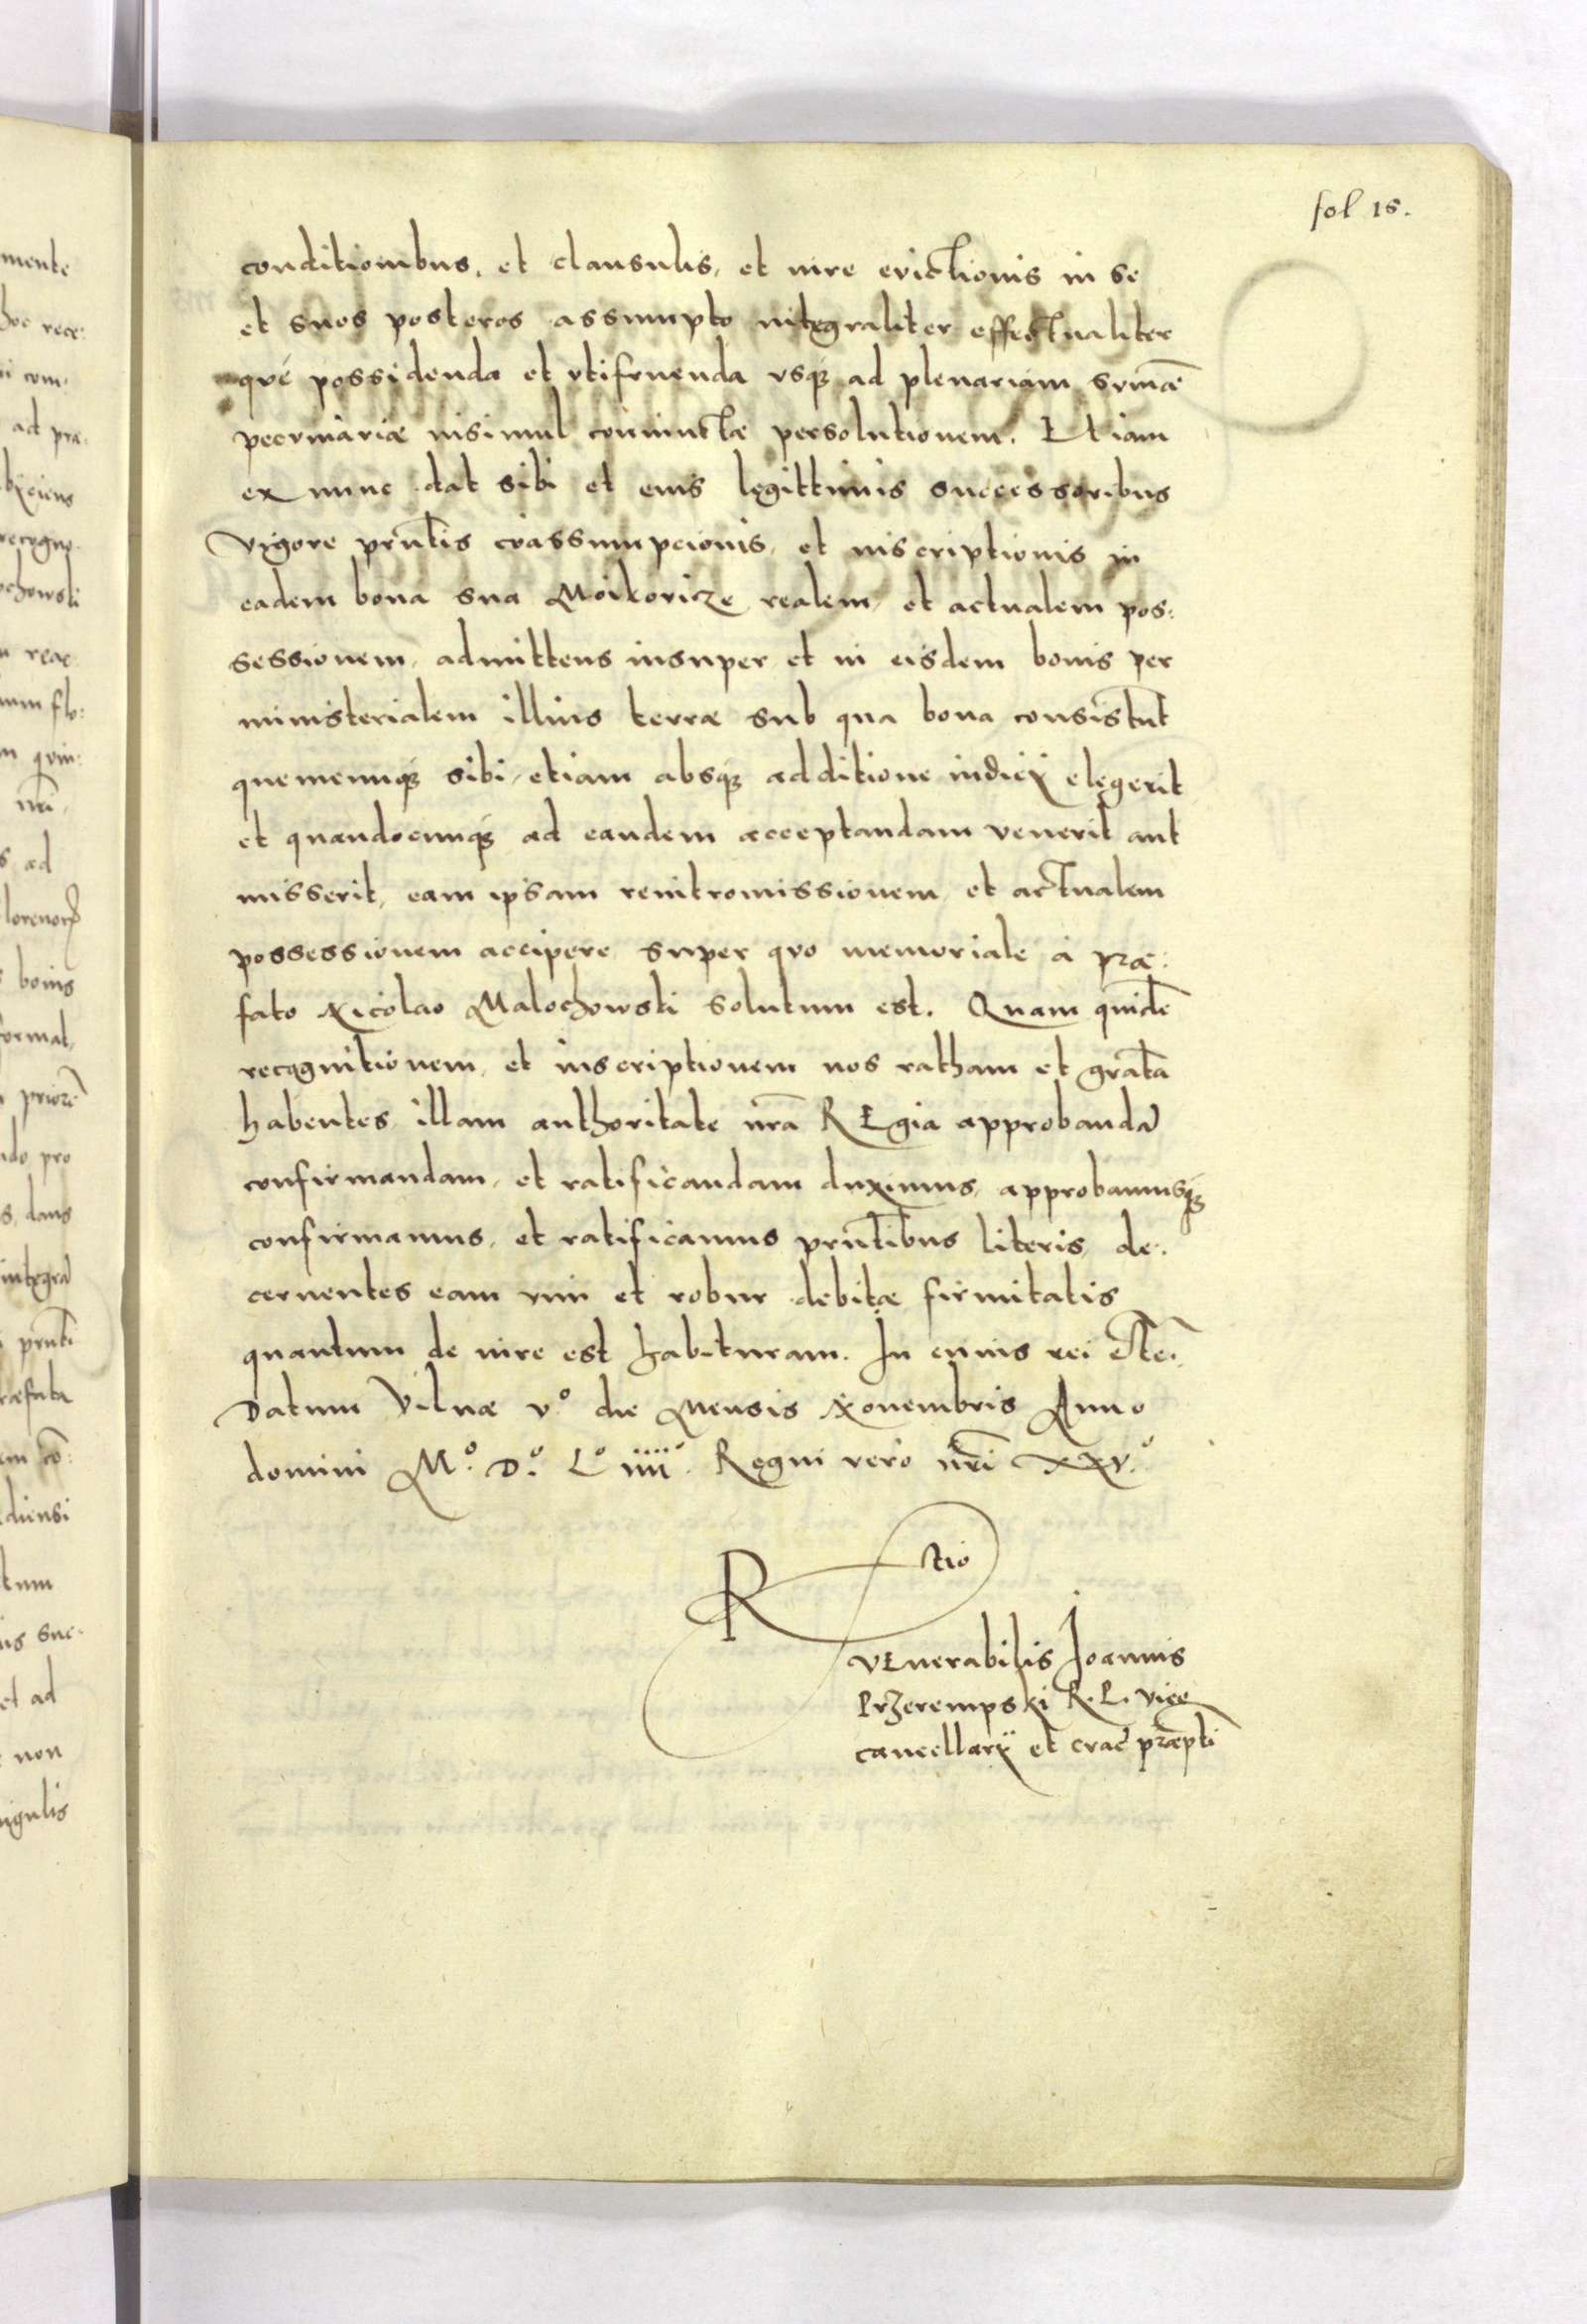 fol 15.
conditionibus, et clausulis, et iure evictionis in se
et suos posteros assumpto integraliter effectualiter
que possidenda et utifruenda usq3 ad plenariam sum̄æ
pecuniariæ insimul coniunctæ persolutionem. Et iam
ex nunc dat sibi et eius legittimis successoribus
vigore pñtis coassumpcionis, et inscriptionis in
eadem bona sua Moikovicze realem, et actualem pos:
sessionem, admittens insuper et in eisdem bonis per
ministerialem illius terræ sub qua bona consistũt
quemcunq3 sibi, etiam absq3 additione iudicij elegerit
et quandocunq3 ad eandem acceptandam venerit aut
misserit, eam ipsam reintromissionem et actualem
possessionem accipere, super quo memoriale à præ:
fato Nicolao Malochowski solutum est. Quam quidẽ
recognitionem, et inscriptionem nos ratham et gratã
habentes, illam authoritate nr̃a REgia approbandã
confirmandam, et ratificandam duximus, approbamusq3
confirmamus, et ratificamus pñtibus literis, de:
cernentes eam vim et robur debitæ firmitatis
quantum de iure est habituram. In cuius rei &te.
Datum Vilnæ v.º die Mensis Novembris Anno
domini M.º D.º L.º iiii.º Regni vero nr̃i xxv.º
R tio
VEnerabilis Joannis
Przerempski R. P. vice
cancellarij et crac̃ præpti